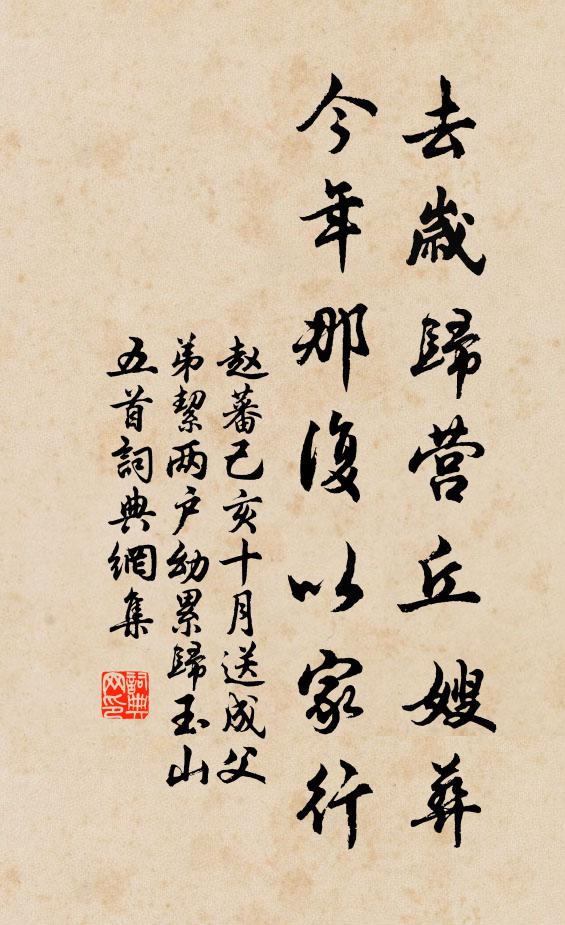 去歲歸营丘嫂葬
今年那復以家行
赵蕃己亥十月送成父
弟絜两户幼累歸玉山
五首詞典網集
詞典网印